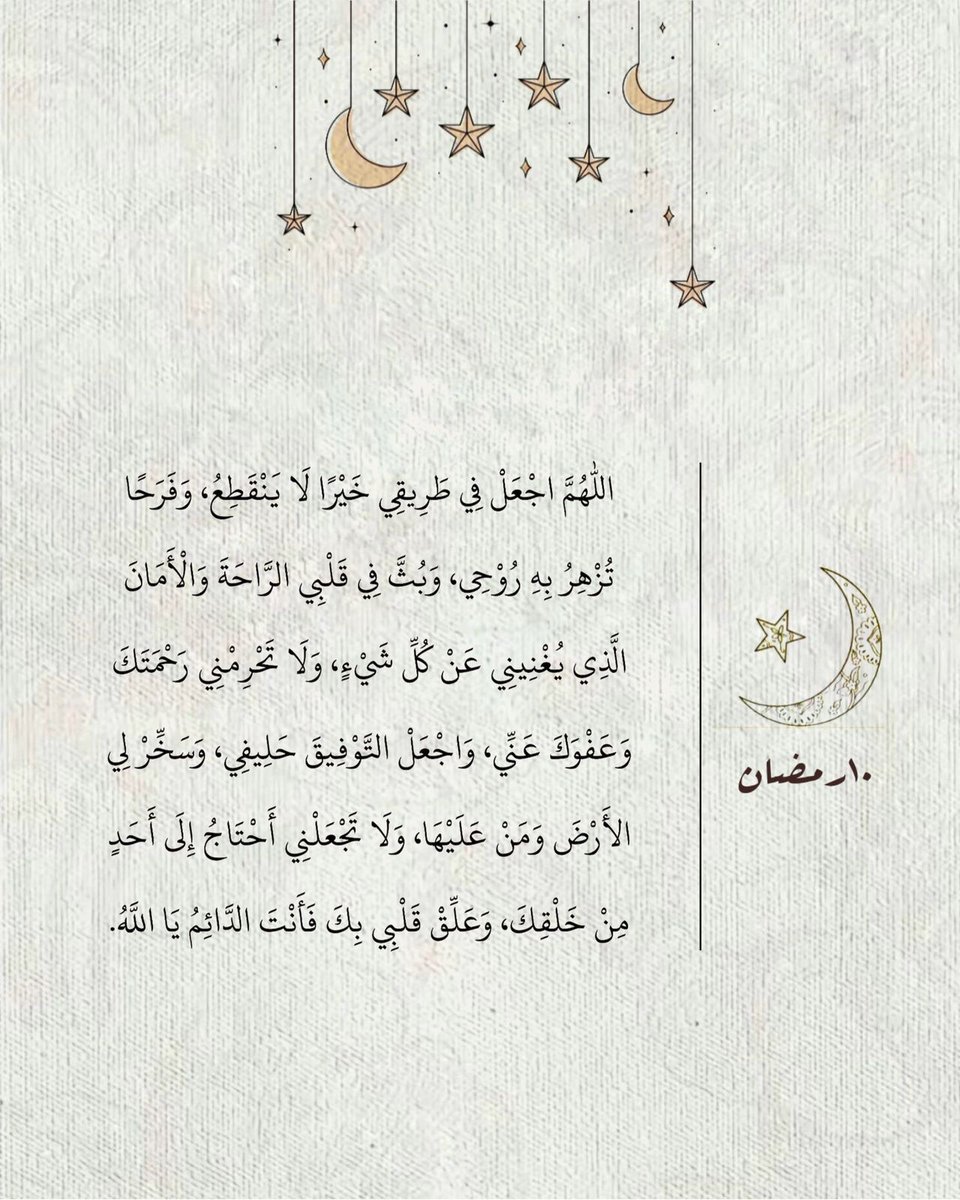 اللّٰهُمَّ اجْعَلْ فِي طَرِيقِي خَيْرًا لَا يَنْقَطِعُ، وَفَرَحًا
تُزْهِرُ بِهِ رُوْحِي، وَبُثَّ فِي قَلْبِي الرَّاحَةَ وَالْأَمَانَ
الَّذِي يُغْنِينِي عَنْ كُلِّ شَيْءٍ، وَلَا تَحْرِمْنِي رَحْمَتَكَ
وَعَفْوَكَ عَنِّي، وَاجْعَلْ التَّوْفِيقَ حَلِيفِي، وَسَخِّرْ لِي
الأَرْضَ وَمَنْ عَلَيْهَا، وَلَا تَجْعَلْنِي أَحْتَاجُ إِلَى أَحَدٍ
مِنْ خَلْقِكَ، وَعَلِّقْ قَلْبِي بِكَ فَأَنْتَ الدَّائِمُ يَا اللَّهُ.
١٠رمضان